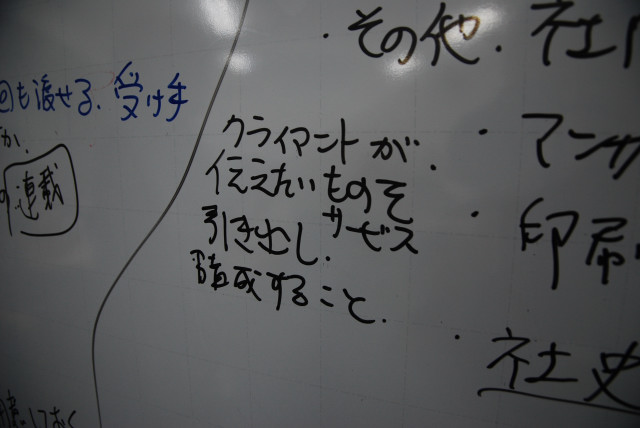 回も渡せる、受け手
連載
クライアントが
伝えたいものを
引き出し、サービス
成すること.
・その他. 社内
・マンガ
・印刷
・社史
しておく